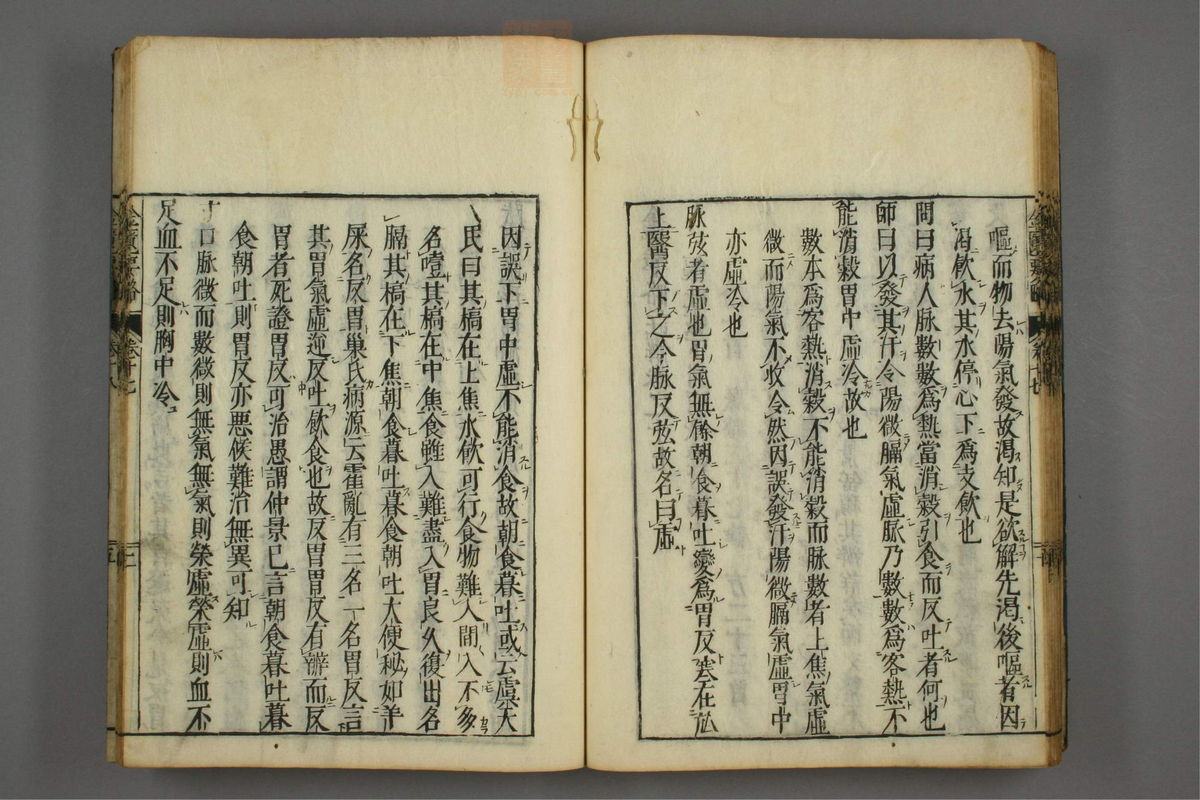 嘔而物去陽氣發故渴知是欲解先渴後嘔者因
渴飲水其水停心下爲支飲也
問曰病人脉數數爲熱當消穀引食而反吐者何也
師曰以發其汗令陽微膈氣虛脉乃數數爲客熱不
能消穀胃中虛冷故也
數本爲客熱消穀不能消穀而脉數者上焦氣虛
微而陽氣不收令然因誤發汗陽微膈氣虛胃中
亦虛冷也
脉弦者虛也胃氣無餘朝食暮吐變爲胃反寒在於
上醫反下之令脉反弦故名曰虛
因誤下胃中虛不能消食故朝食暮吐或云虞天
氏曰其槁在上焦水飲可行食物難入間入不多
名噎其槁在中焦食雖入難盡入胃良久復出名
膈其槁在下焦朝食暮吐暮食朝吐大便秘如羊
屎名反胃巢氏病源云霍亂有三名一名胃反言
其胃氣虛逆反吐飲食也故反胃胃反有辨而反
胃者死證胃反可治愚謂仲景已言朝食暮吐暮
食朝吐則胃反亦悪候難治無異可知
寸口脉微而數微則無氣無氣則榮虛榮虛則血不
足血不足則胸中冷